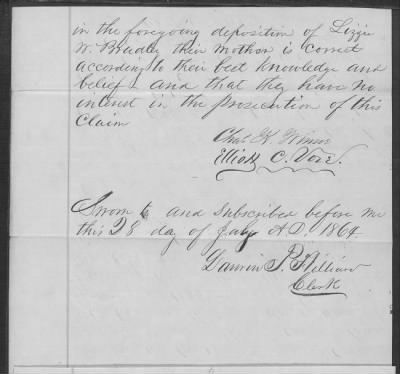 in the foregoing deposition of Lizzie
W. Bradley their Mother is correct
according to their best knowledge and
belief - and that they have no
interest in the Prosecution of this
Claim
Chas K.
Elliott C. Vose.
Sworn to and Subscribed before me
this 28 day of July A.D. 1864.
P. Hilliard
Clerk